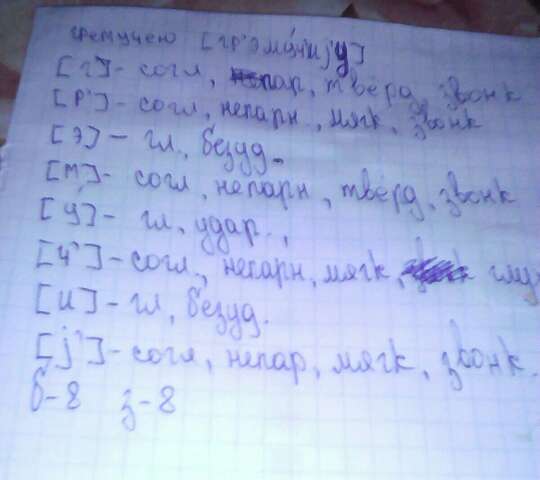 гремучею [гр'эму́ч'иjу]
[г]- согл, пар, твёрд, звонк
[р']- согл, непарн., мягк, звонк
[э]- гл., безуд.
[м]- согл, непарн, твёрд, звонк
[у]- гл, удар.,
[ч']- согл., непарн, мягк, глу
[и]- гл, безуд.
[j']- согл, непар, мягк, звонк.
б-8 з-8